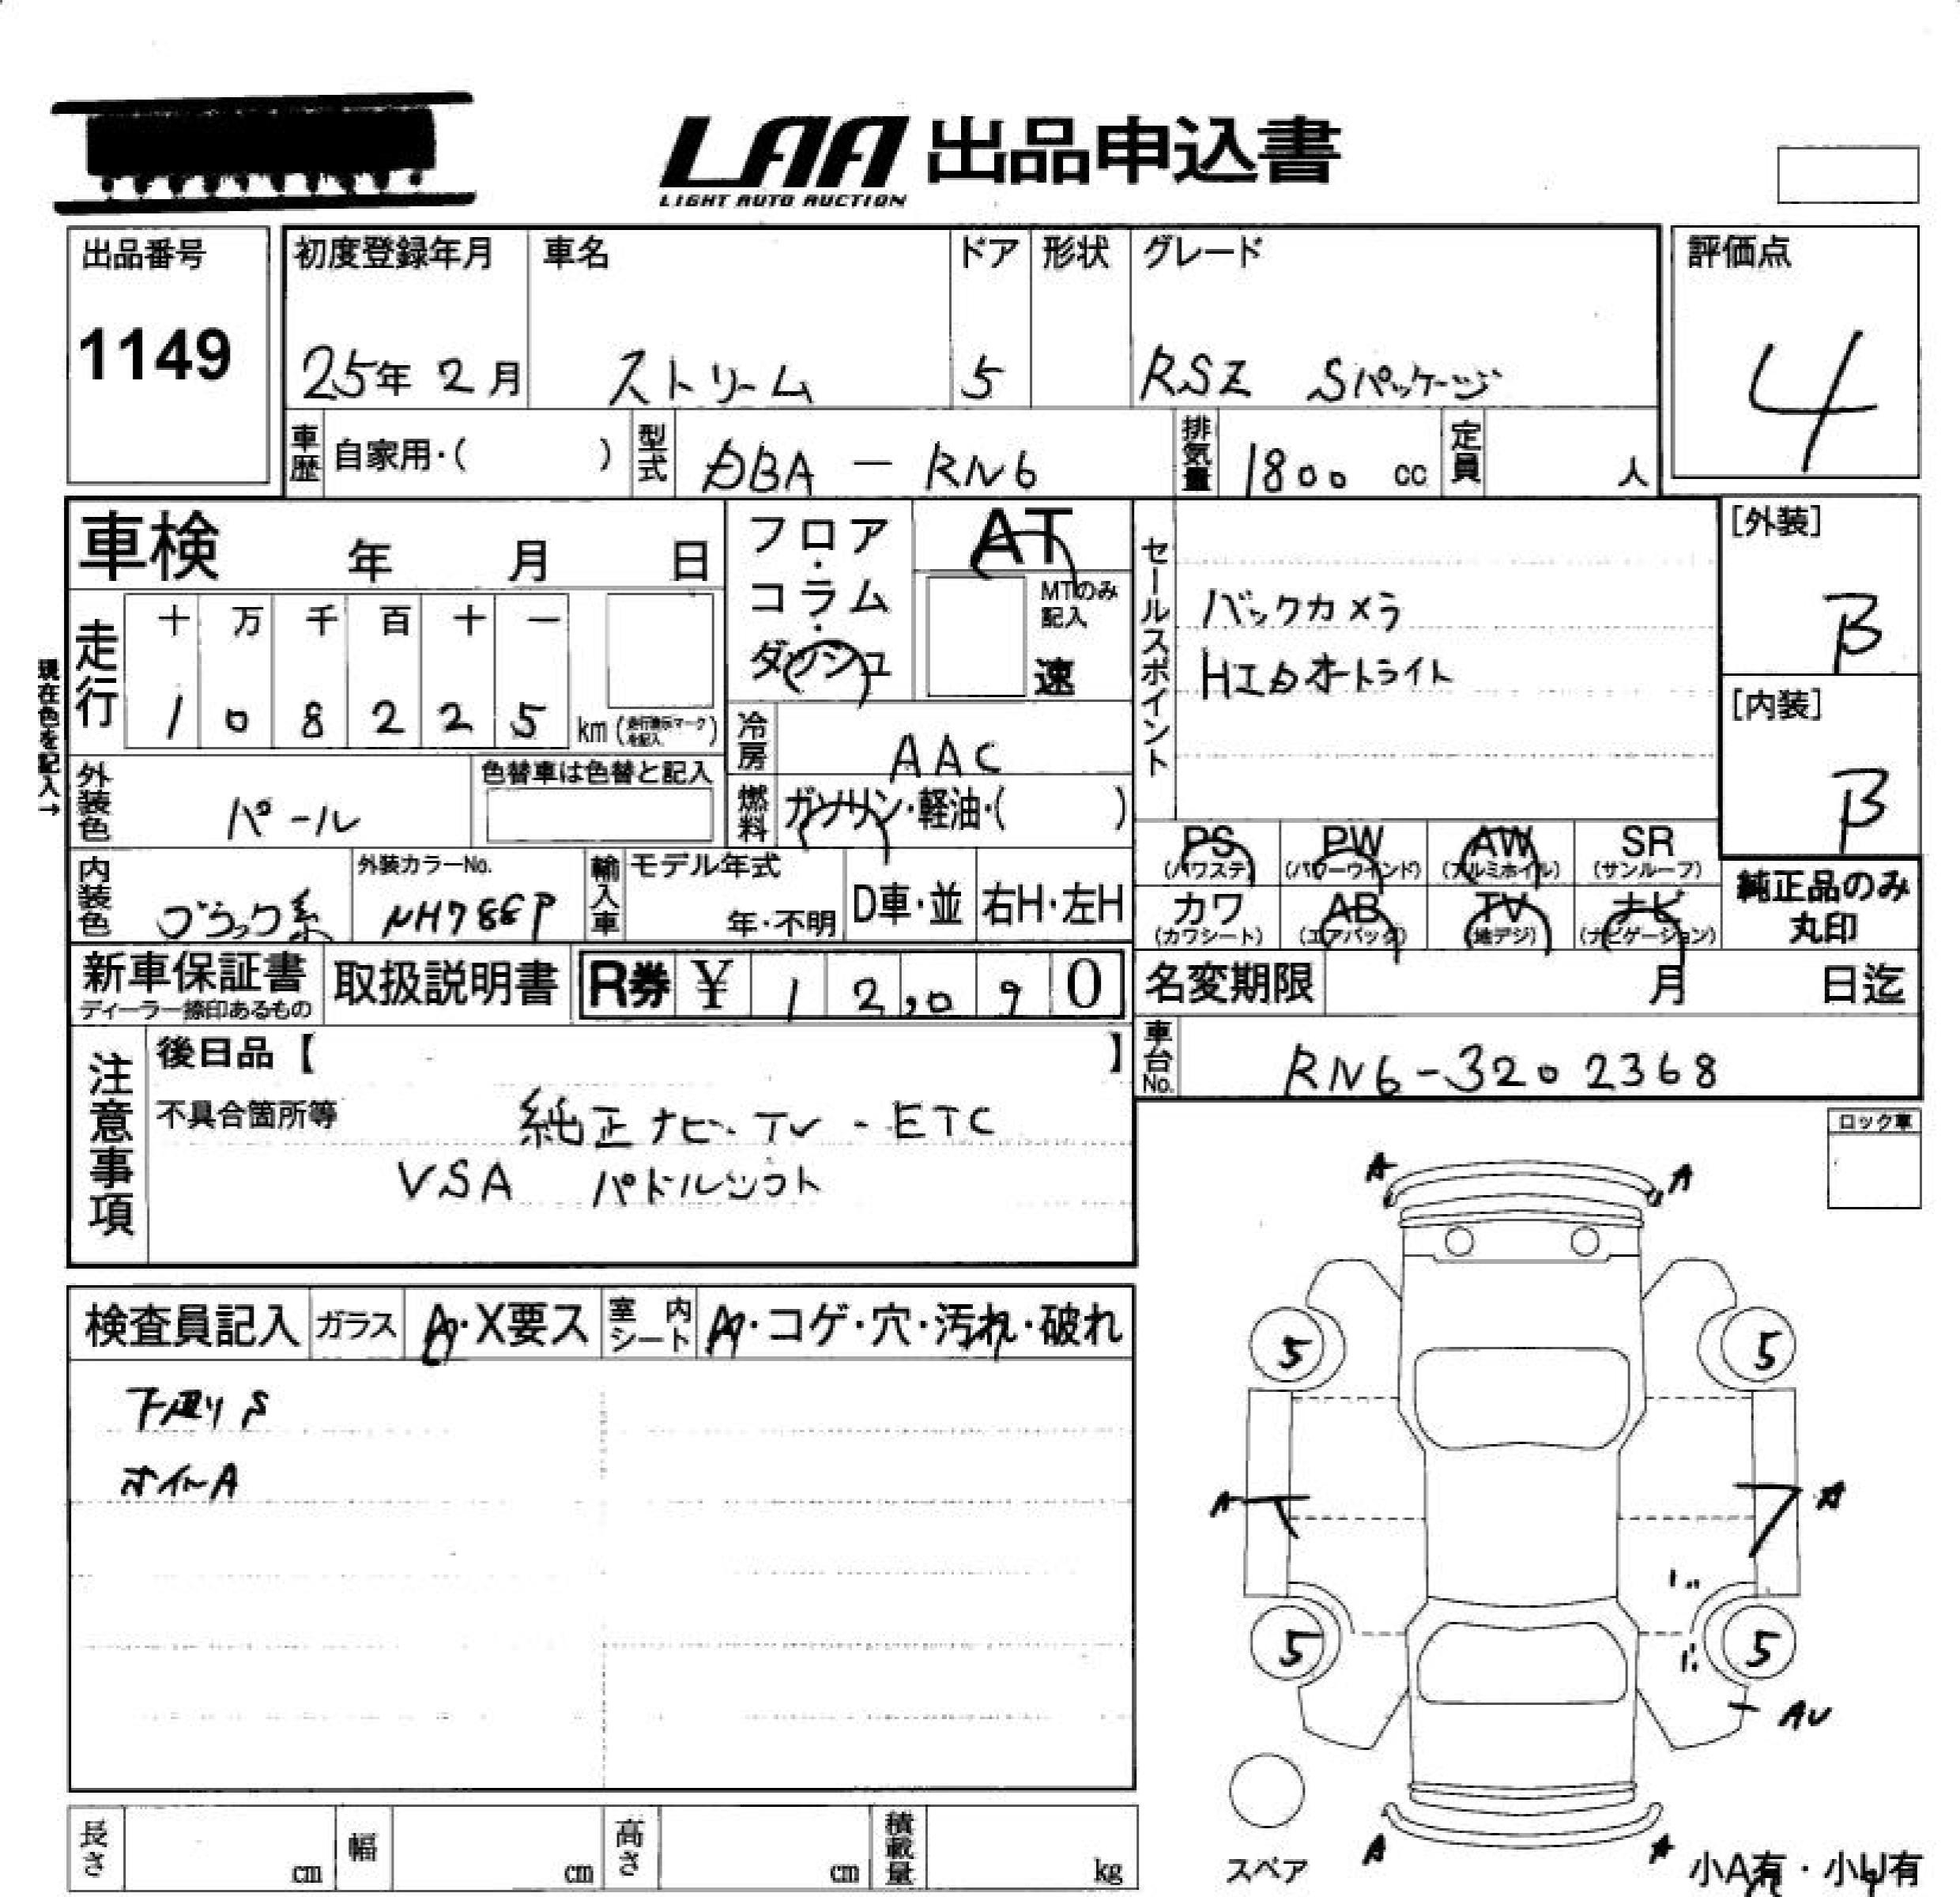 LAA 出品申込書
LIGHT AUTO AUCTION
出品番号
1149
初度登録年月 車名 ドア 形状 グレード
25年 2月 ストリーム 5 RSZ Sパッケージ
評価点
4
車歴 自家用・( ) 型式 DBA － RN6 排気量 1800 cc 定員 人
車検 年 月 日
フロア・コラム・ダッシュ
AT
MTのみ記入
速
セールスポイント
バックカメラ
HIDオートライト
[外装]
B
[内装]
B
現在色を記入→
走行 十 万 千 百 十 一
1 0 8 2 2 5 km (走行表示マークを記入)
冷房 AAC
外装色 パール 色替車は色替と記入
燃料 ガソリン・軽油・( )
PS (パワステ) PW (パワーウインド) AW (アルミホイル) SR (サンルーフ)
カワ (カワシート) AB (エアバック) TV (地デジ) ナビ (ナビゲーション)
純正品のみ
丸印
内装色 ブラック系 外装カラーNo. NH788P 輸入車 モデル年式 年・不明 D車・並 右H・左H
新車保証書 取扱説明書 R券 ¥ 1 2,0 9 0
ディーラー捺印あるもの
名変期限 月 日迄
車台No. RN6-3202368
注意事項
後日品【 】
不具合箇所等 純正ナビ・TV・ETC
VSA パドルシフト
ロック車
検査員記入 ガラス A・X要ス 室内シート A・コゲ・穴・汚れ・破れ
下廻りS
ホイルA
A A
5 5
A A
5 5
AU
A A
スペア
小A有・小U有
長さ cm 幅 cm 高さ cm 積載量 kg